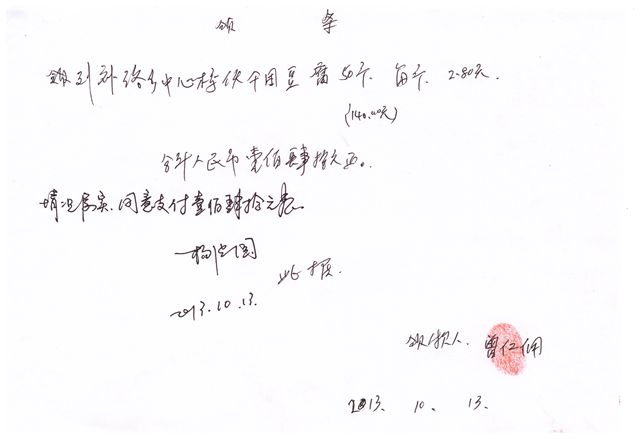 领 条
领到补络乡中心校伙食用豆腐50斤. 每斤 2.80元.
(140.00元)
合计人民币壹佰肆拾元正。
情况属实.同意支付壹佰肆拾元正。
杨
2013.10.13.
此据.
领款人. 曾仁佣
2013. 10. 13.